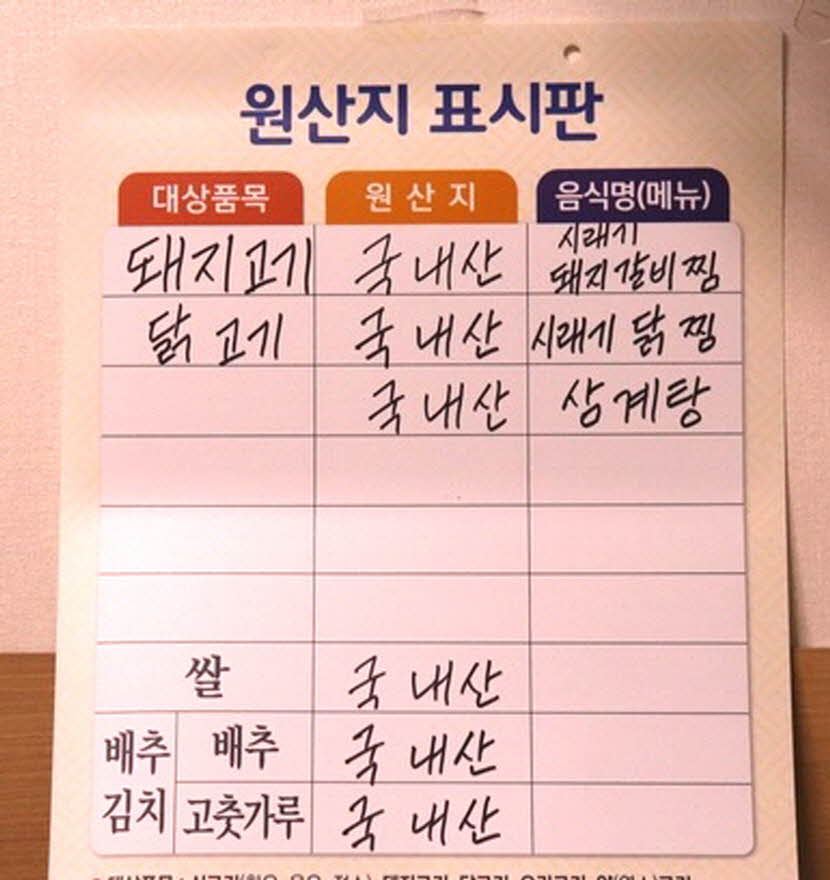 원산지 표시판
대상품목 원산지 음식명(메뉴)
돼지고기 국내산 시래기 돼지갈비찜
닭고기 국내산 시래기 닭찜
국내산 삼계탕
쌀 국내산
배추김치 배추 국내산
고춧가루 국내산